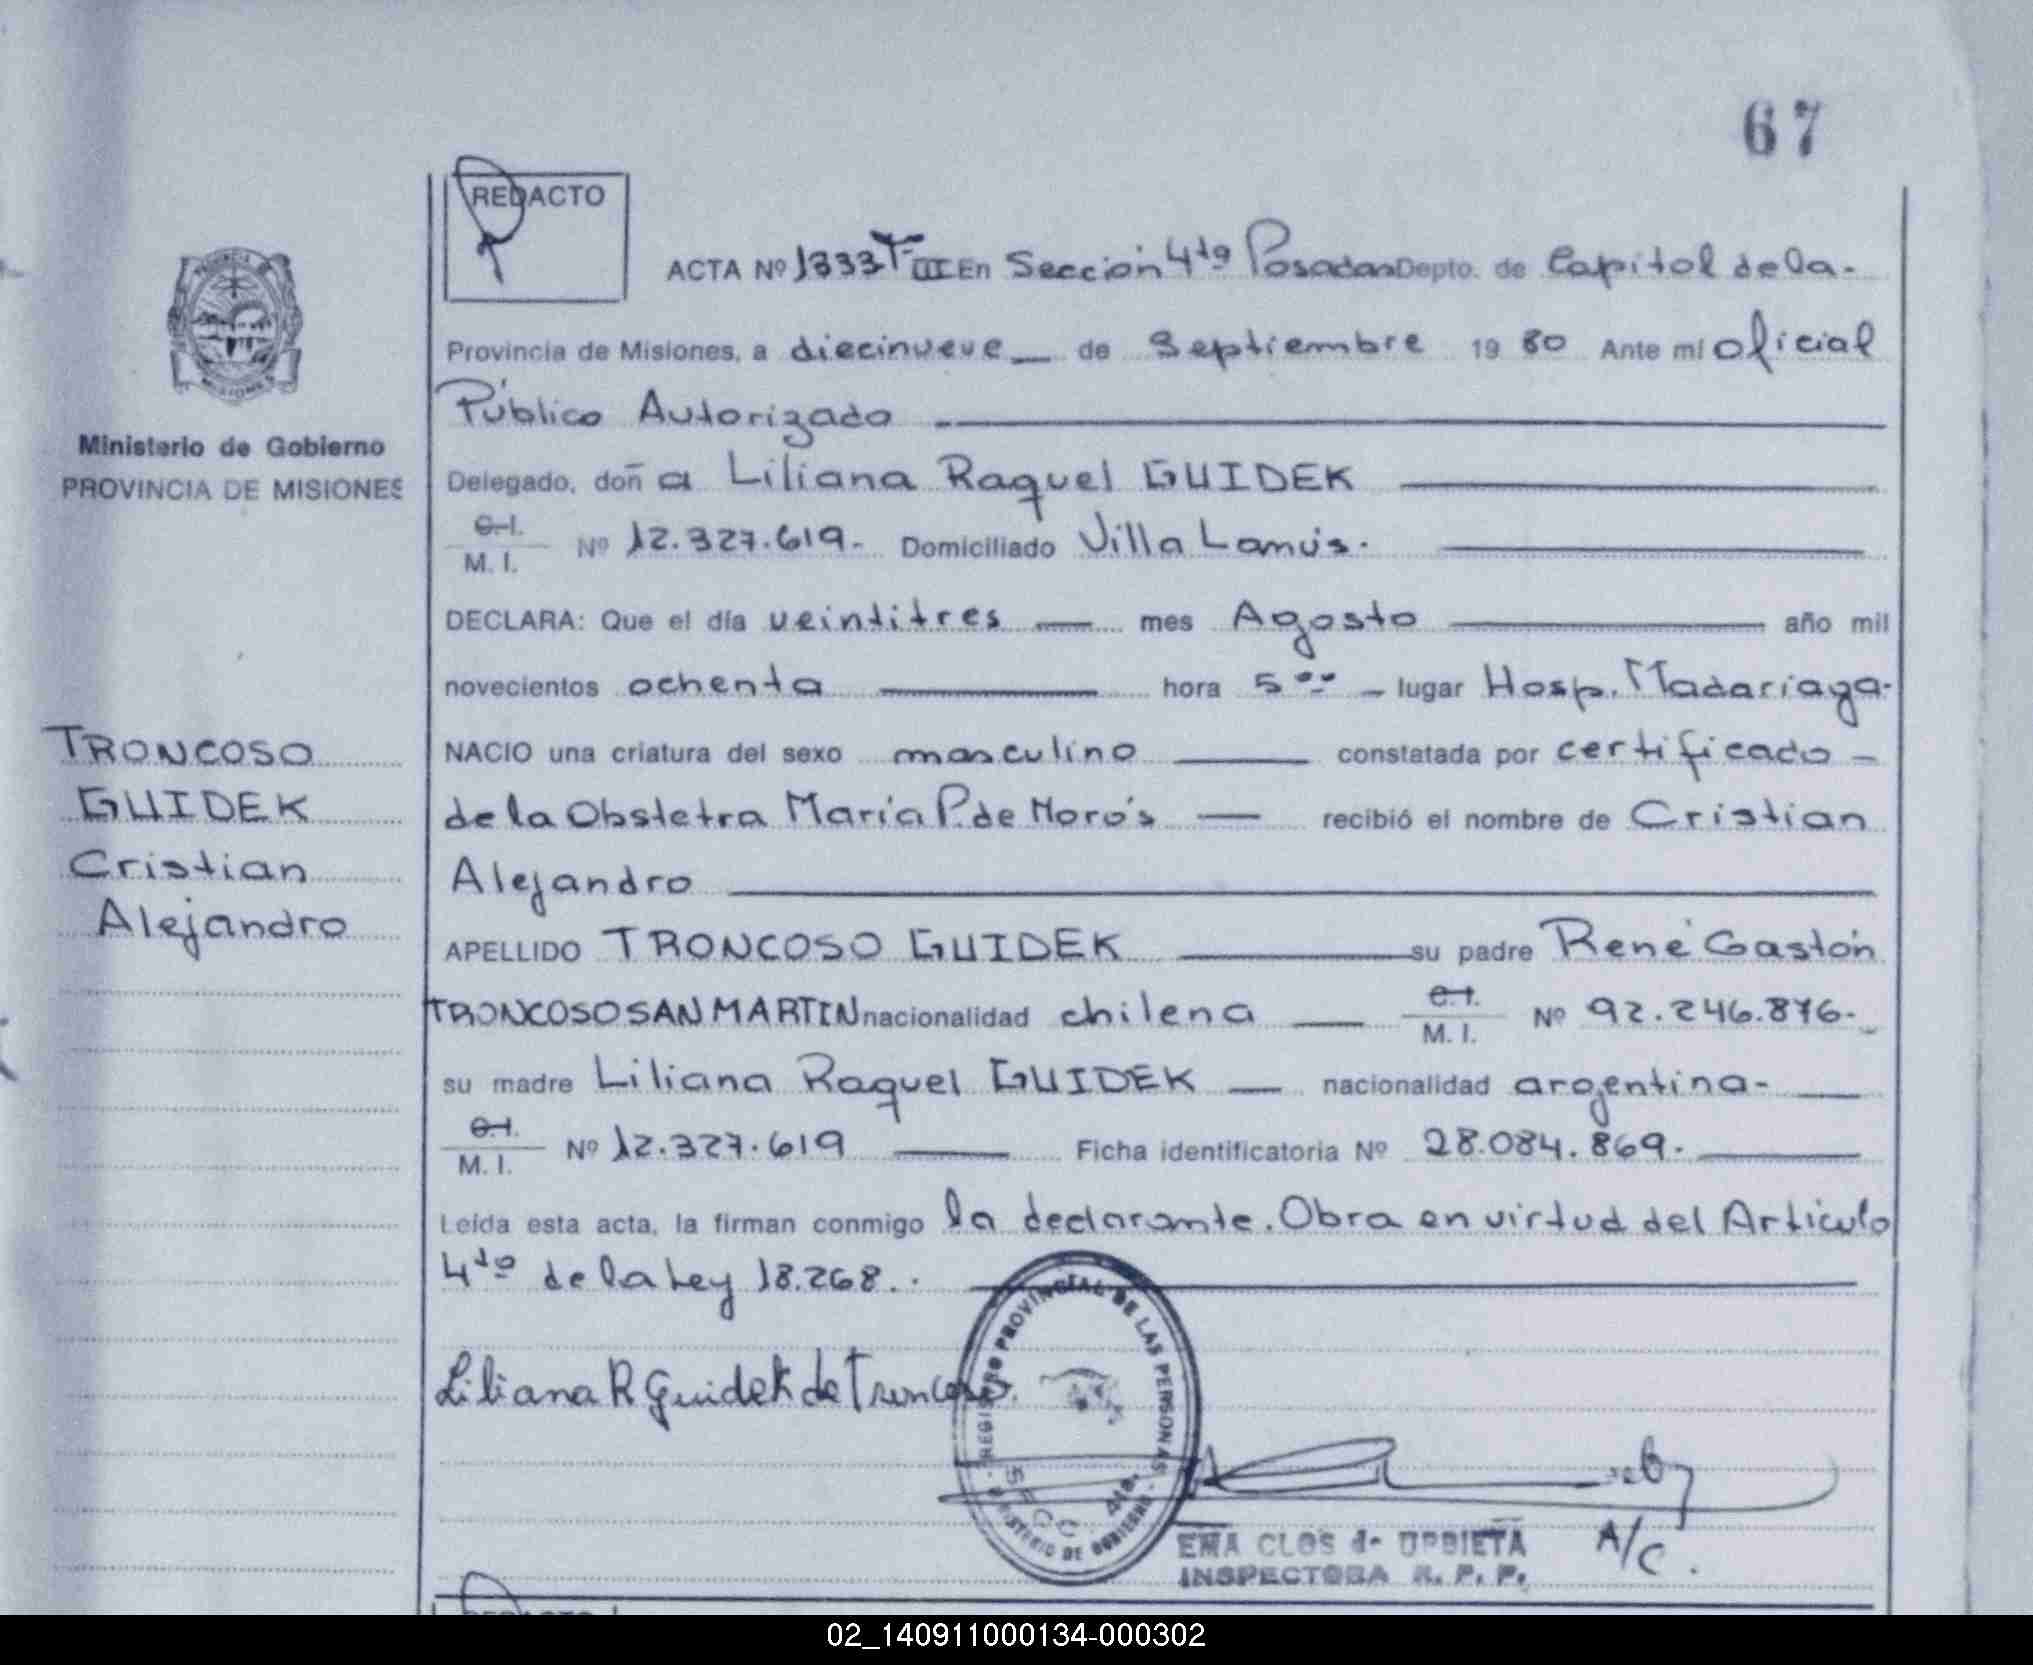 67
REDACTO
ACTA Nº 1333 T-III En Sección 4ta Posadas Depto. de Capital de la-
Provincia de Misiones, a diecinueve de Septiembre 19 80 Ante mí Oficial
Público Autorizado
Delegado, doña Liliana Raquel GUIDEK
C.I.
M. I. Nº 12.327.619.- Domiciliado Villa Lanús.
DECLARA: Que el día veintitres mes Agosto año mil
novecientos ochenta hora 5 00 lugar Hosp. Madariaga-
NACIO una criatura del sexo masculino constatada por certificado
de la Obstetra María P. de Morós recibió el nombre de Cristian
Alejandro
APELLIDO TRONCOSO GUIDEK su padre René Gastón
TRONCOSO SAN MARTIN nacionalidad chilena C.I.
M. I. Nº 92.246.876.-
su madre Liliana Raquel GUIDEK nacionalidad argentina-
C.I.
M. I. Nº 12.327.619 Ficha identificatoria Nº 28.084.869.
Leída esta acta, la firman conmigo la declarante. Obra en virtud del Articulo
4to de la Ley 18.268..
Liliana R Guidek de Troncoso.
REGISTRO PROVINCIAL DE LAS PERSONAS
SECC. 4ta.
MINISTERIO DE GOBIERNO
EMA CLOS de URBIETA
INSPECTORA R. P. P.
A/C.
PROVINCIA DE
MISIONES
Ministerio de Gobierno
PROVINCIA DE MISIONES
TRONCOSO
GUIDEK
Cristian
Alejandro
REDACTO
02_140911000134-000302